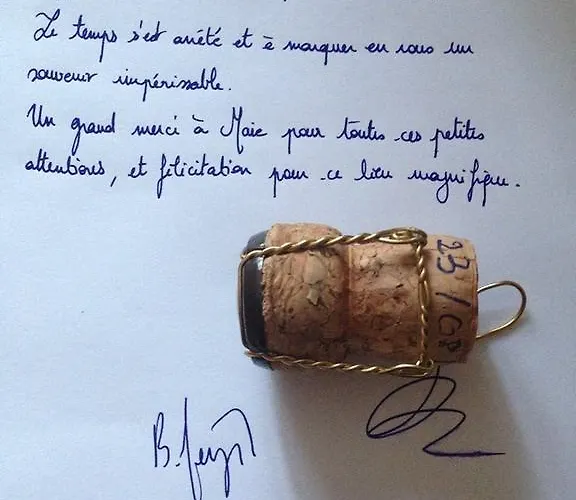 Le temps s'est arrêté et à marquer en nous un
souvenir impérissable.
Un grand merci à Marie pour toutes ces petites
attentions, et félicitation pour ce lieu magnifique.
23/08
B.